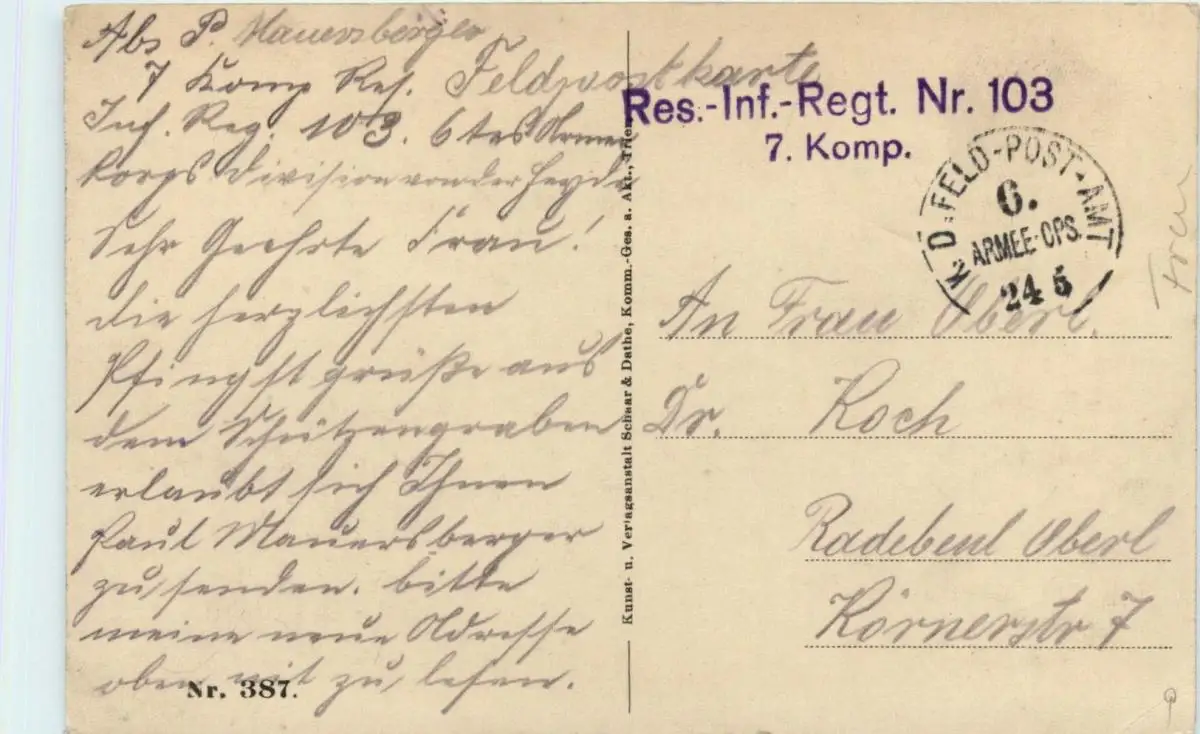 Abs P. Mauersberger
7 Komp Res. Feldpostkarte
Inf. Reg. 103. 6tes Armee
Korps Division von der
Sehr Geehrte Frau!
die herzlichsten
Pfingstgrüße aus
dem Schützengraben
erlaubt sich Ihnen
Paul Mauersberger
zu senden. bitte
meine neue Adresse
oben mit zu lesen.
Nr. 387.
Kunst- u. Verlagsanstalt Schaar & Dathe, Komm.-Ges. a. Akt., Trier
Res.-Inf.-Regt. Nr. 103
7. Komp.
K. D. FELD-POST-AMT
6.
ARMEE-CPS.
24 5
An Frau Oberl.
Dr. Koch
Radebeul Oberl
Körnerstr 7
Frau